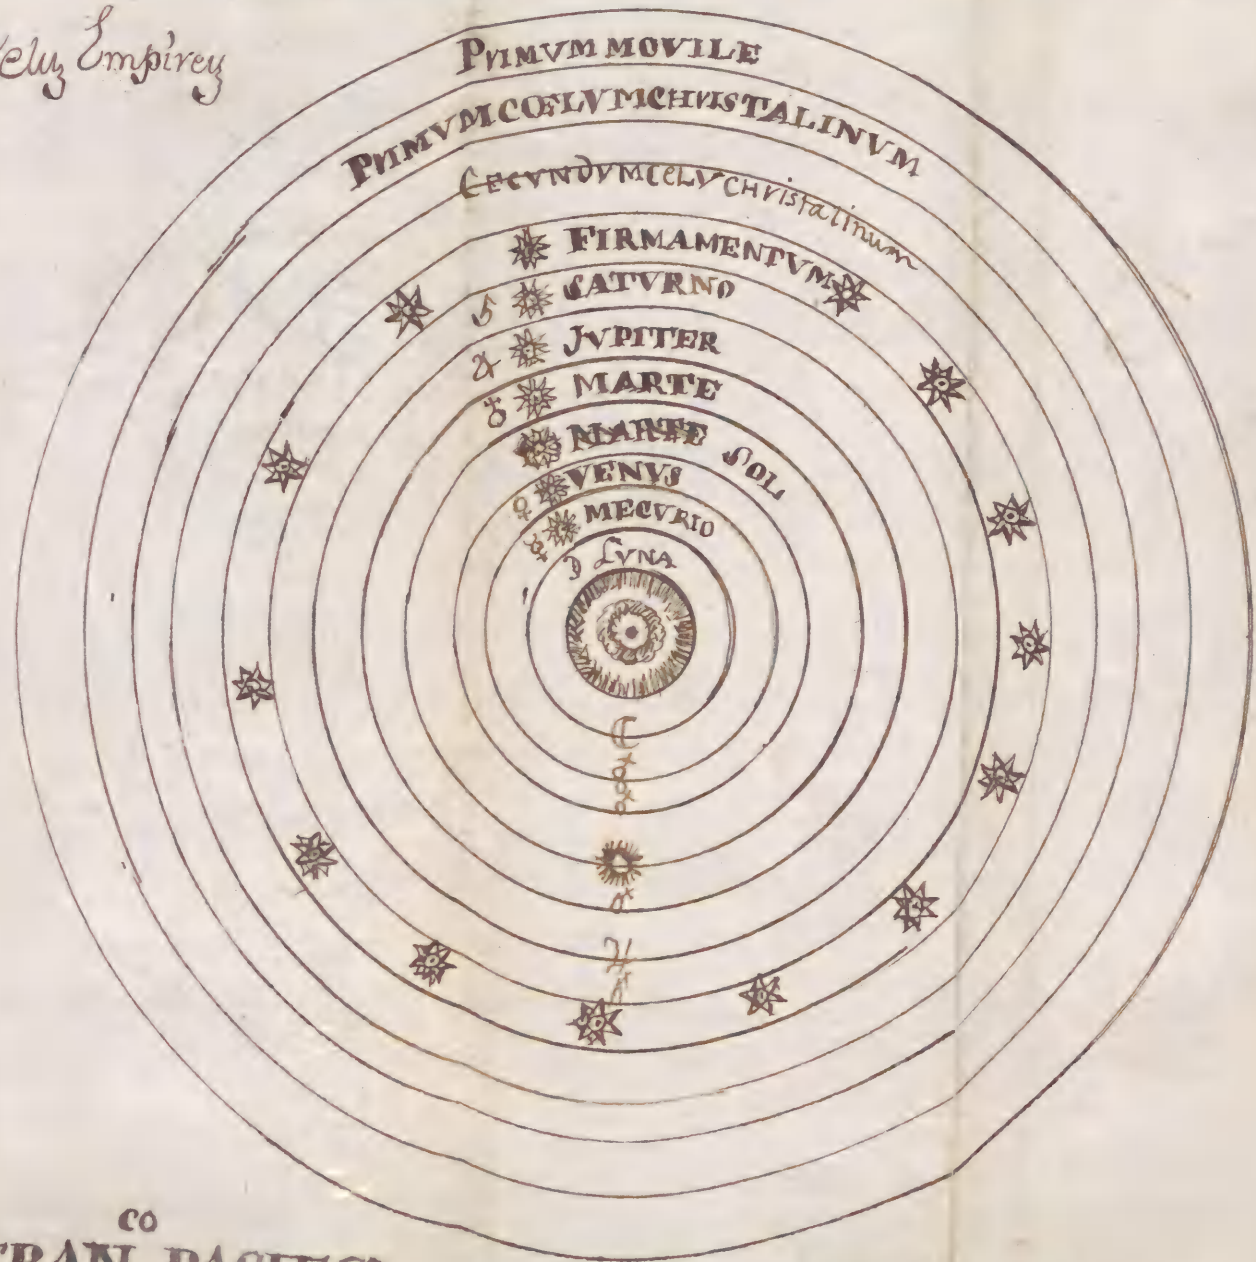 Empirey
PRIMVM MOVILE
PRIMVM CŒLVM CHRISTALINVM
CECVNDVM CELV CHristalinum
FIRMAMENTVM
SATVRNO
JVPITER
MARTE
MARTE
SOL
VENVS
MECVRIO
LVNA
co